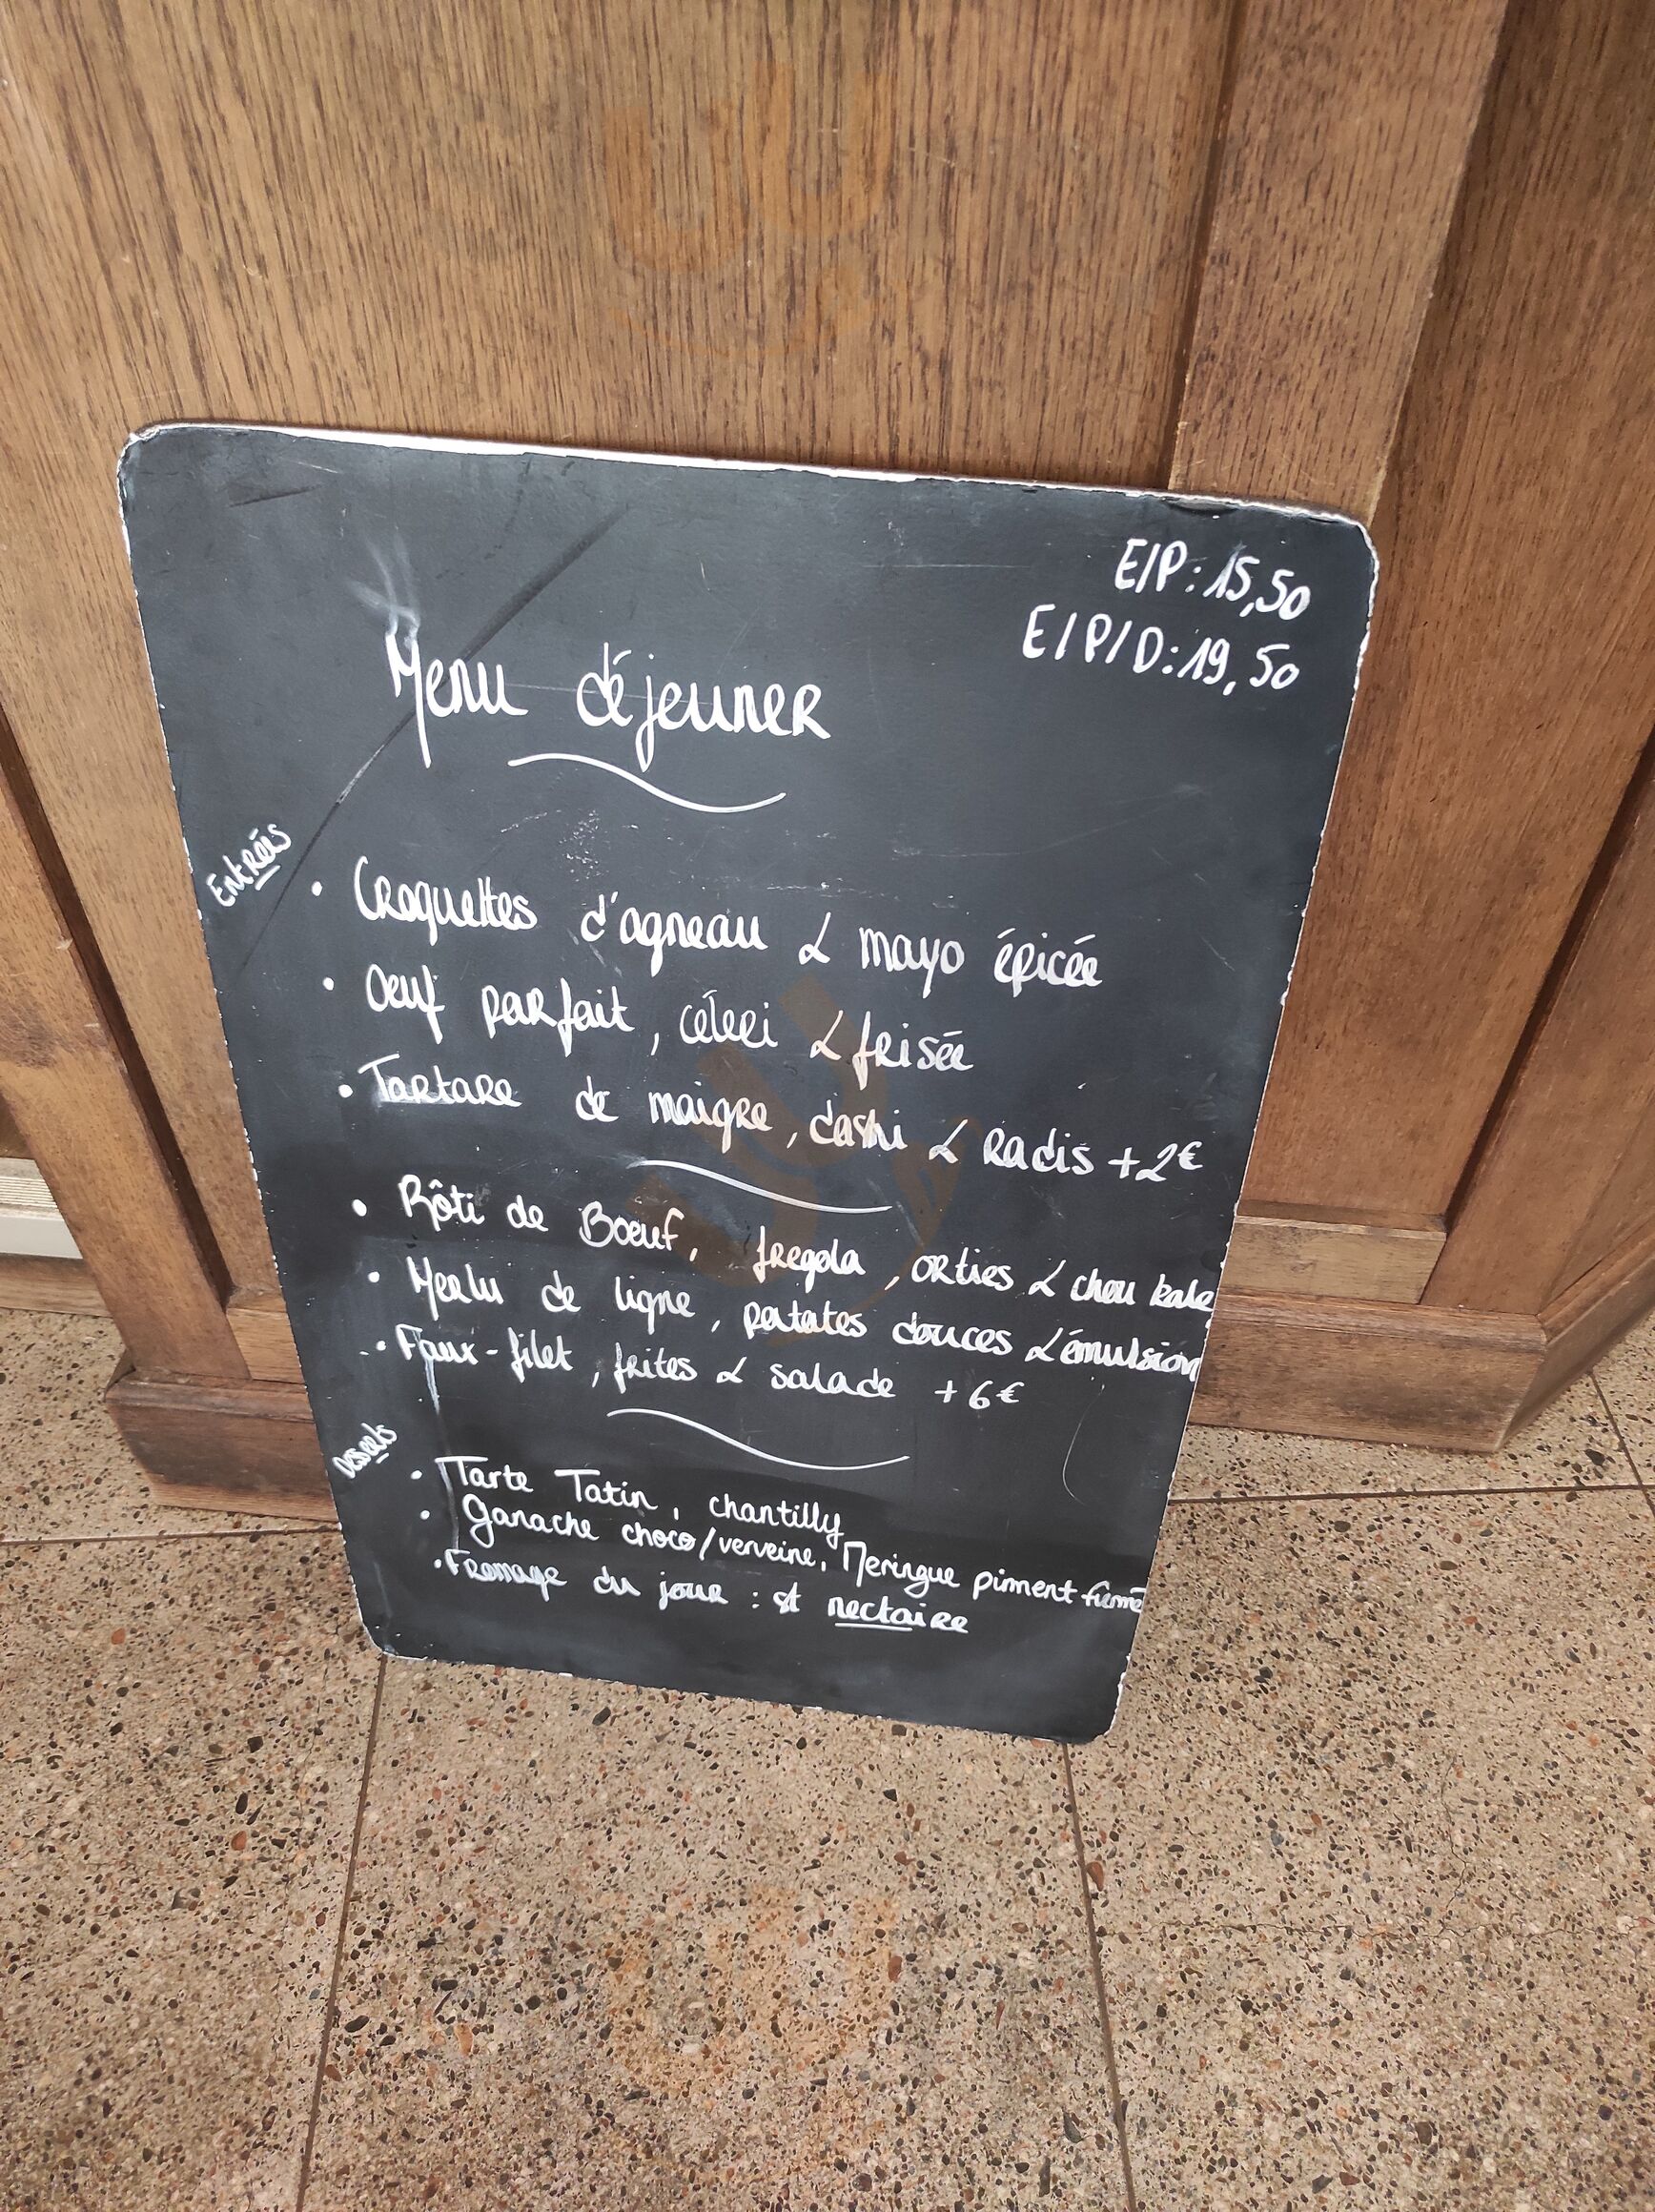 E/P: 15,50
E/P/D: 19,50
Menu déjeuner
Entrées
• Croquettes d'agneau & mayo épicée
• Oeuf parfait, céleri & frisée
• Tartare de maigre, dashi & Radis +2€
• Rôti de Boeuf, fregola, orties & chou kale
• Merlu de ligne, patates douces & émulsion
• Faux-filet, frites & salade +6€
Desserts
• Tarte Tatin, chantilly
• Ganache choco/verveine, Meringue piment fumé
• Fromage du jour : st nectaire